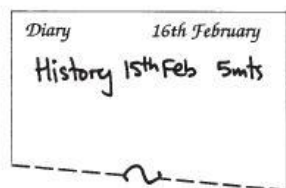 Diary 16th February
History 15th Feb 5mts